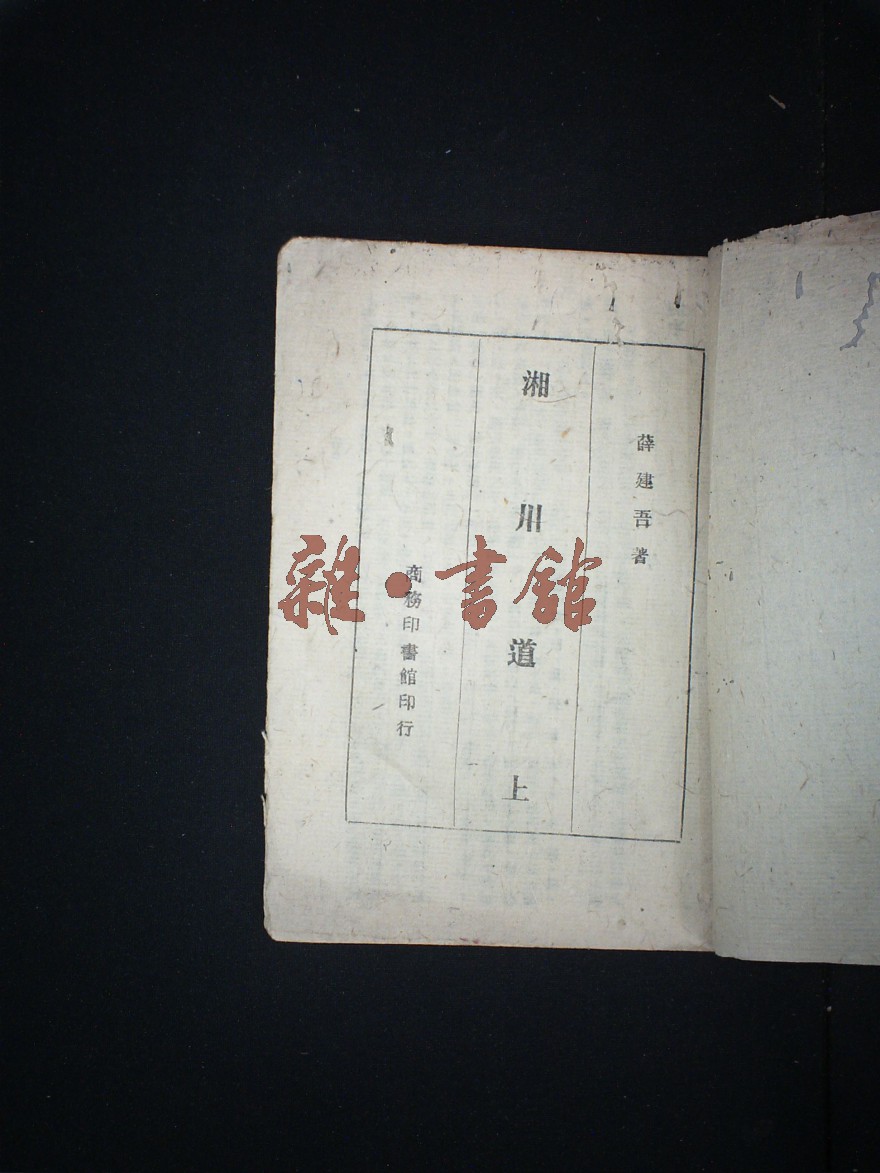 薛建吾著
湘川道上
商務印書館印行
雜·書館